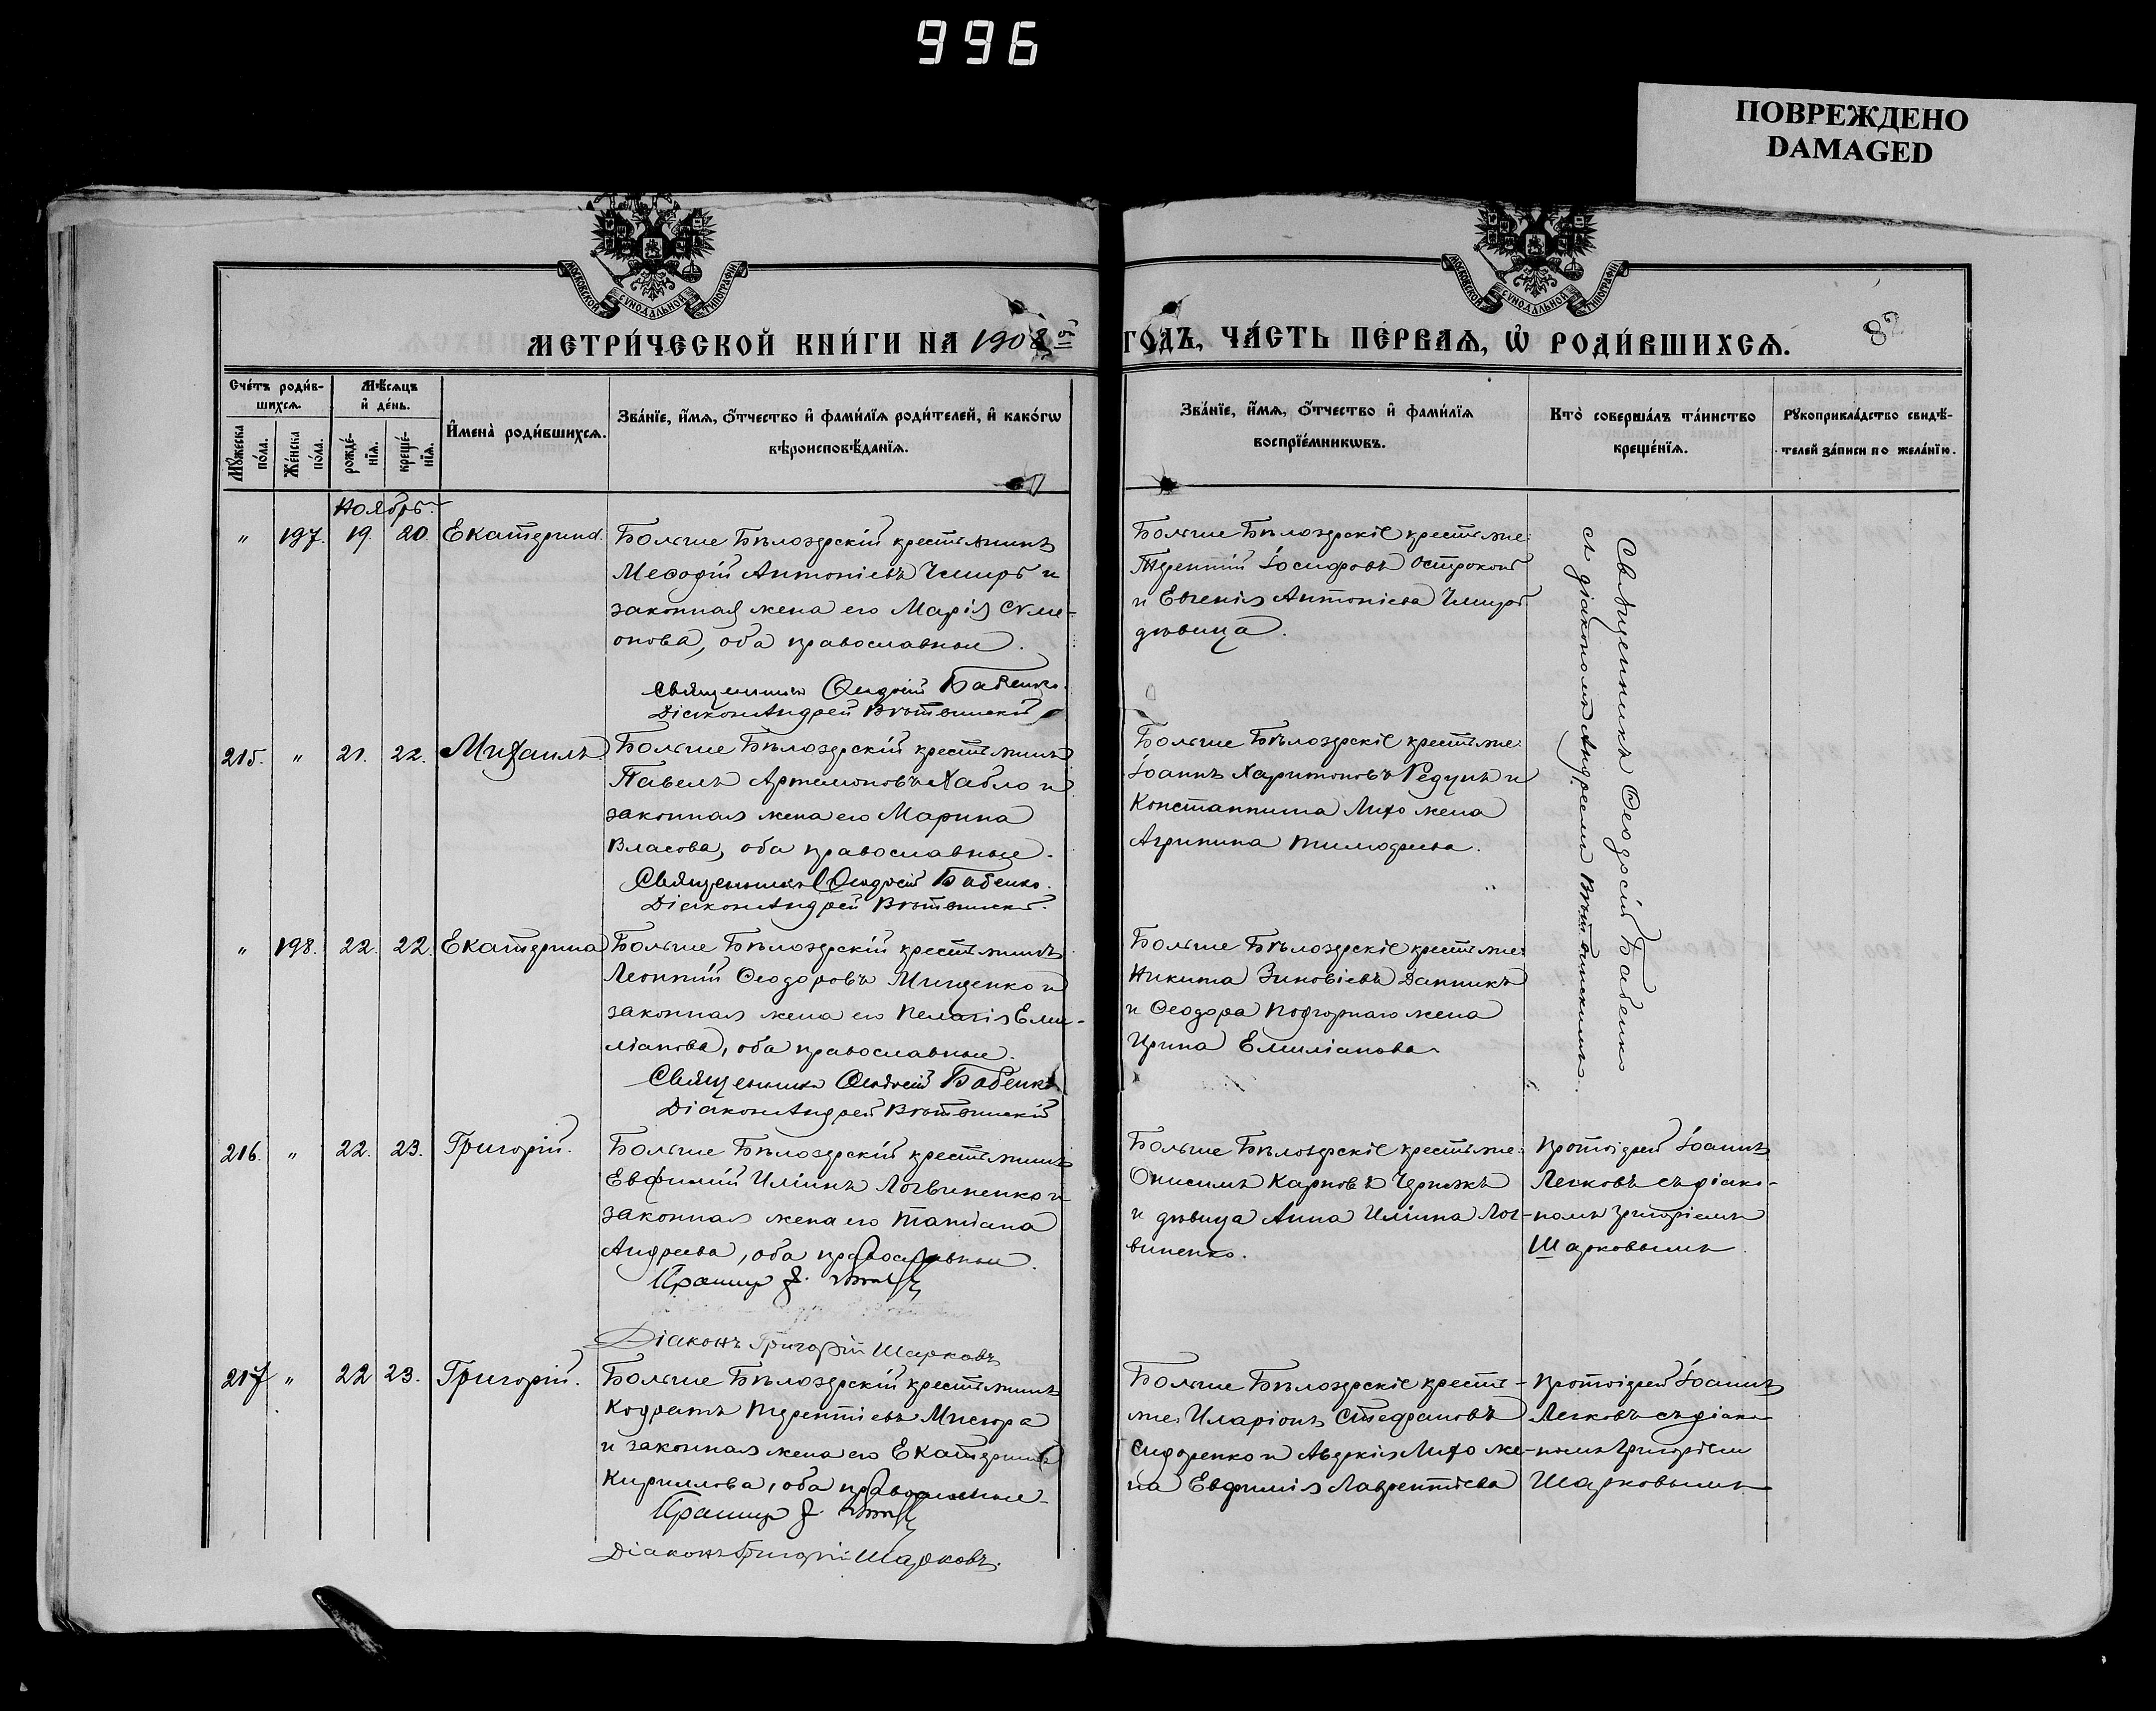 996
ПОВРЕЖДЕНО
DAMAGED
МОСКОВСКОЙ СѴНОДАЛЬНОЙ ТИПОГРАФІИ
МОСКОВСКОЙ СѴНОДАЛЬНОЙ ТИПОГРАФІИ
МЕТРИ́ЧЕСКОЙ КНИ́ГИ НА 1908 й
ГОДЪ, ЧА́СТЬ ПЕ́РВАѦ, Ѡ҆ РОДИ́ВШИХСѦ.
82
Сче́тъ роди́в-
шихсѧ.
Мѣ́сѧцъ
и҆ де́нь.
Мꙋ́жеска по́ла.
Же́нска по́ла.
рожде́-
нїѧ.
креще́-
нїѧ.
И҆мена̀ роди́вшихсѧ.
Зва́нїе, и҆́мѧ, ѻ҆́тчество и҆ фами́лїѧ роди́телей, и҆ како́гѡ
вѣроисповѣ́данїѧ.
Зва́нїе, и҆́мѧ, ѻ҆́тчество и҆ фами́лїѧ
воспрїе́мникѡвъ.
Кто̀ соверша́лъ та́инство
креще́нїѧ.
Рꙋкоприкла́дство свидѣ́-
телей за́писи по жела́нїю.
Ноябрь.
" 197. 19. 20. Екатерина.
Больше Бѣлозерскій крестьянинъ
Меѳодій Антоніевъ Чемиръ и
законная жена его Марія Сѵме-
онова, оба православные.
Священникъ Ѳеодосій Бабенко.
Діаконъ Андрей Вѣтвинскій
Больше Бѣлозерскіе крестьяне:
Терентій Іосифовъ Остроконь
и Евгенія Антоніева Чемиръ
дѣвица.
Священникъ Ѳеодосій Бабенко
съ діакономъ Андреемъ Вѣтвинскимъ.
215. " 21. 22. Михаилъ.
Больше Бѣлозерскій крестьянинъ
Павелъ Артемоновъ Хабло и
законная жена его Марина
Власова, оба православные.
Священникъ Ѳеодосій Бабенко.
Діаконъ Андрей Вѣтвинскій.
Больше Бѣлозерскіе крестьяне:
Іоаннъ Харитоновъ Редунъ и
Константина Лихо жена
Агрипина Тимофеева.
" 198. 22. 22. Екатерина
Больше Бѣлозерскій крестьянинъ
Леонтій Ѳеодоровъ Мищенко и
законная жена его Пелагія Еми-
ліанова, оба православные.
Священникъ Ѳеодосій Бабенко
Діаконъ Андрей Вѣтвинскій
Больше Бѣлозерскіе крестьяне:
Никита Зиновіевъ Данникъ
и Ѳеодора Подгорнаго жена
Ирина Емиліанова.
216. " 22. 23. Григорій.
Больше Бѣлозерскій крестьянинъ
Евфимій Иліинъ Логвиненко и
законная жена его Татіана
Андреева, оба православные.
Діаконъ Григорій Шарковъ
Больше Бѣлозерскіе крестьяне:
Онисимъ Карповъ Чернякъ
и дѣвица Анна Иліина Лог-
виненко.
Протоіерей Іоаннъ
Легковъ съ діако-
номъ Григоріемъ
Шарковымъ.
217 " 22 23. Григорій.
Больше Бѣлозерскій крестьянинъ
Кодратъ Терентіевъ Мисюра
и законная жена его Екатерина
Кириллова, оба православные.
Діаконъ Григорій Шарковъ.
Больше Бѣлозерскіе кресть-
яне: Иларіонъ Стефановъ
Сидоренко и Аверкія Лихо же-
на Евфимія Лаврентіева
Протоіерей Іоаннъ
Легковъ съ діако-
номъ Григоріемъ
Шарковымъ